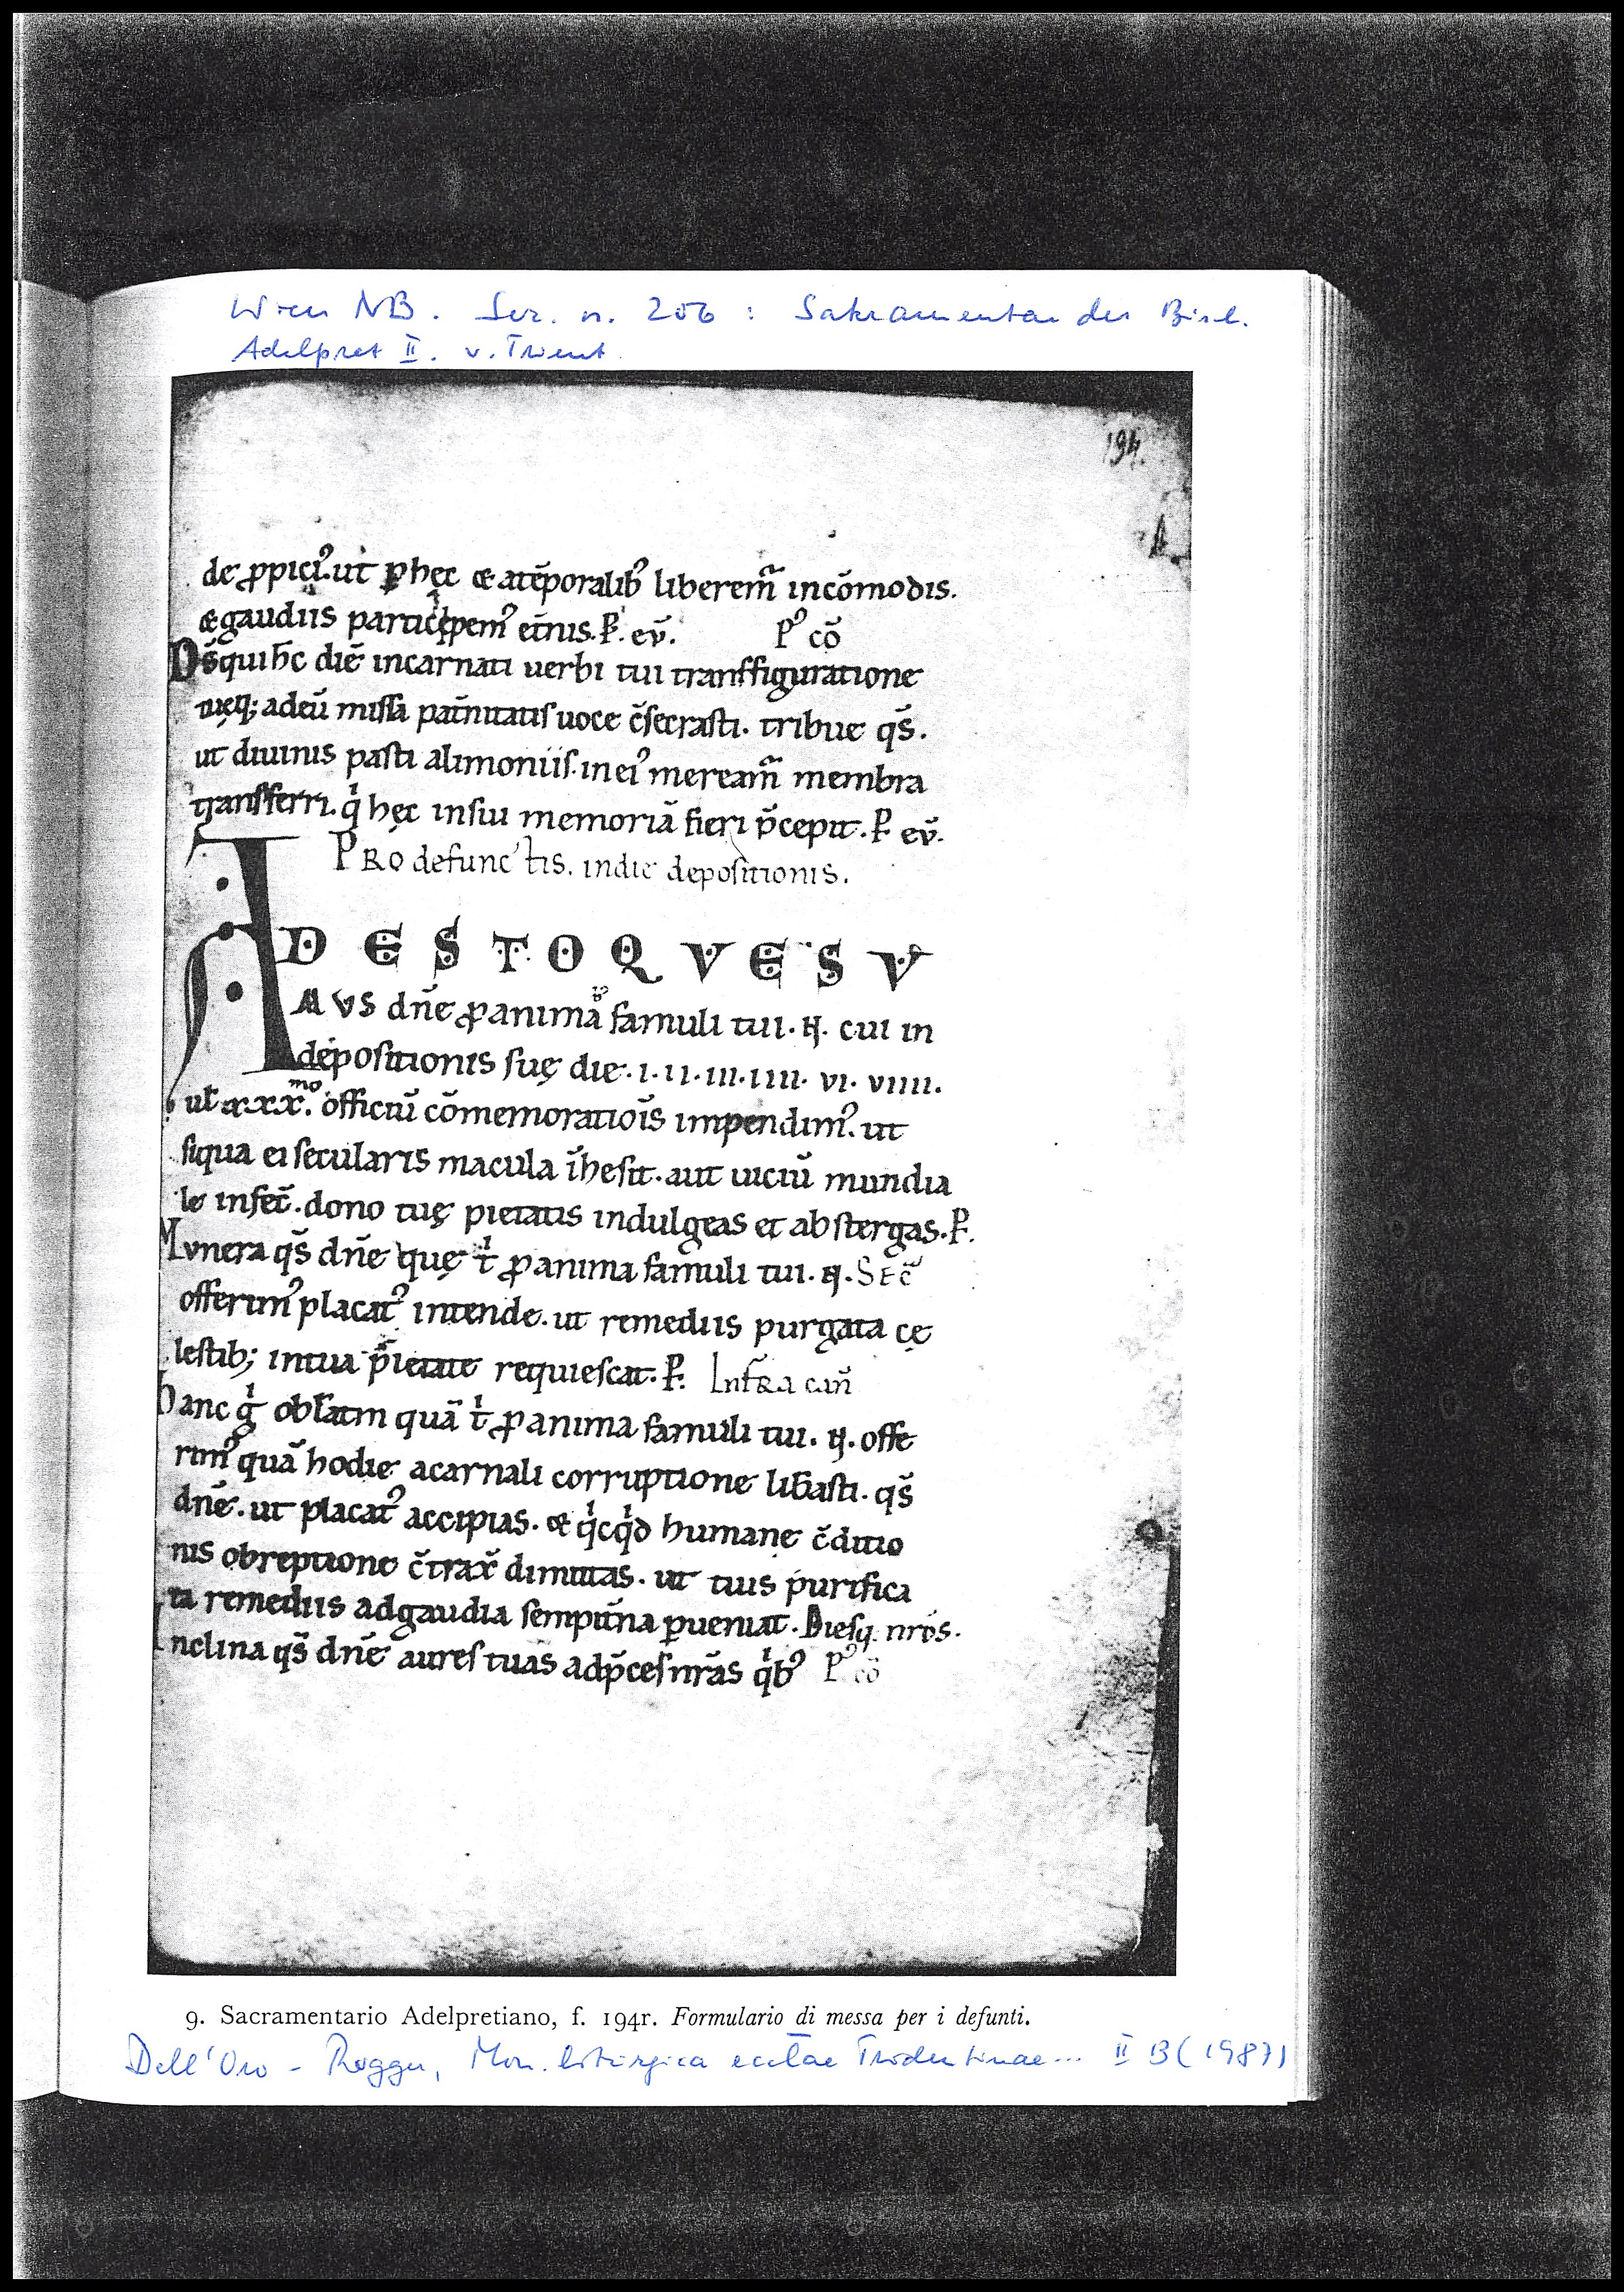 Wien NB. Ser. n. 206 : Sakramentar des Bisch.
Adelpret II. v. Trient
194.
de ꝓpici᷒. ut ꝑ hęc & atēporalib᷒ liberem̃ incōmodis.
& gaudiis participem᷒ et̃nis. P. eũ. P᷒ cō
Ds̃ qui h̄c diē incarnati uerbi tui transfiguratione
tuęq; adeū missa pat̃nitatis uoce c̃secrasti. tribue qs̃.
ut diuinis pasti alimoniis. in ei᷒ meream̃ membra
transferri. qͥ hęc insiu memoriā fieri p̃cepit. P eũ.
PRO defunctis. indie depositionis.
ADESTO QVESV
MVS dñe ꝓ anima famuli tui. N. cui in
depositionis suę die. I. II. III. IIII. VI. VIIII.
ul̃ xxx.mo officiū cōmemoratiōis impendim᷒. ut
siqua ei secularis macula īhesit. aut uiciū mundia
le infec̃. dono tuę pietatis indulgeas et abstergas. P.
Munera qs̃ dñe quę tͥ ꝓ anima famuli tui. N. SEC̃
offerim᷒ placat᷒ intende. ut remediis purgata cę
lestib; intua pietate requiescat. P. Infra cañ
Hanc gͥ obl̃atm quā tͥ ꝓ anima famuli tui. N. offe
rim᷒ quā hodie acarnali corruptione lib̃asti. qs̃
dñe. ut placat᷒ accipias. & qͥcqͥd humane c̃ditio
nis obreptione c̃trax̃ dimittas. ut tuis purifica
ta remediis adgaudia sempit̃na ꝑueniat. Diesq. nr̃os.
Inclina qs̃ dñe aures tuas adp̃ces nr̃as qͥb᷒ P᷒ cō
9. Sacramentario Adelpretiano, f. 194r. Formulario di messa per i defunti.
Dell'Oro - Rogger, Mon. liturgica ecclae Tridentinae... II B (1987)